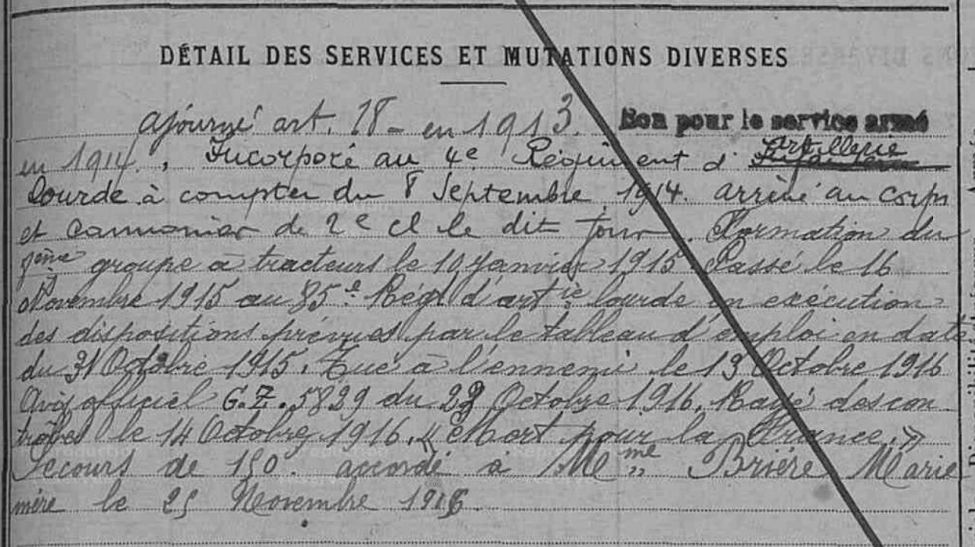 DÉTAIL DES SERVICES ET MUTATIONS DIVERSES
ajourné art. 18 - en 1913. Bon pour le service armé
en 1914. Incorporé au 4e Régiment d' Artillerie
Lourde à compter du 8 Septembre 1914. arrivé au corps
et canonnier de 2e cl le dit jour. Formation du
groupe à tracteurs le 10 Janvier 1915. Passé le 16
Novembre 1915 au 85e Régt d'artie lourde en exécution
des dispositions prévues par le tableau d'emploi en date
du 31 Octobre 1915. Tué à l'ennemi le 13 Octobre 1916
Avis officiel G.Z. 5829 du Octobre 1916. Rayé des con
trôles le 14 Octobre 1916. « Mort pour la France. »
Secours de 150. accordé à Mme Brière Marie
mère le 25 Novembre 1916.